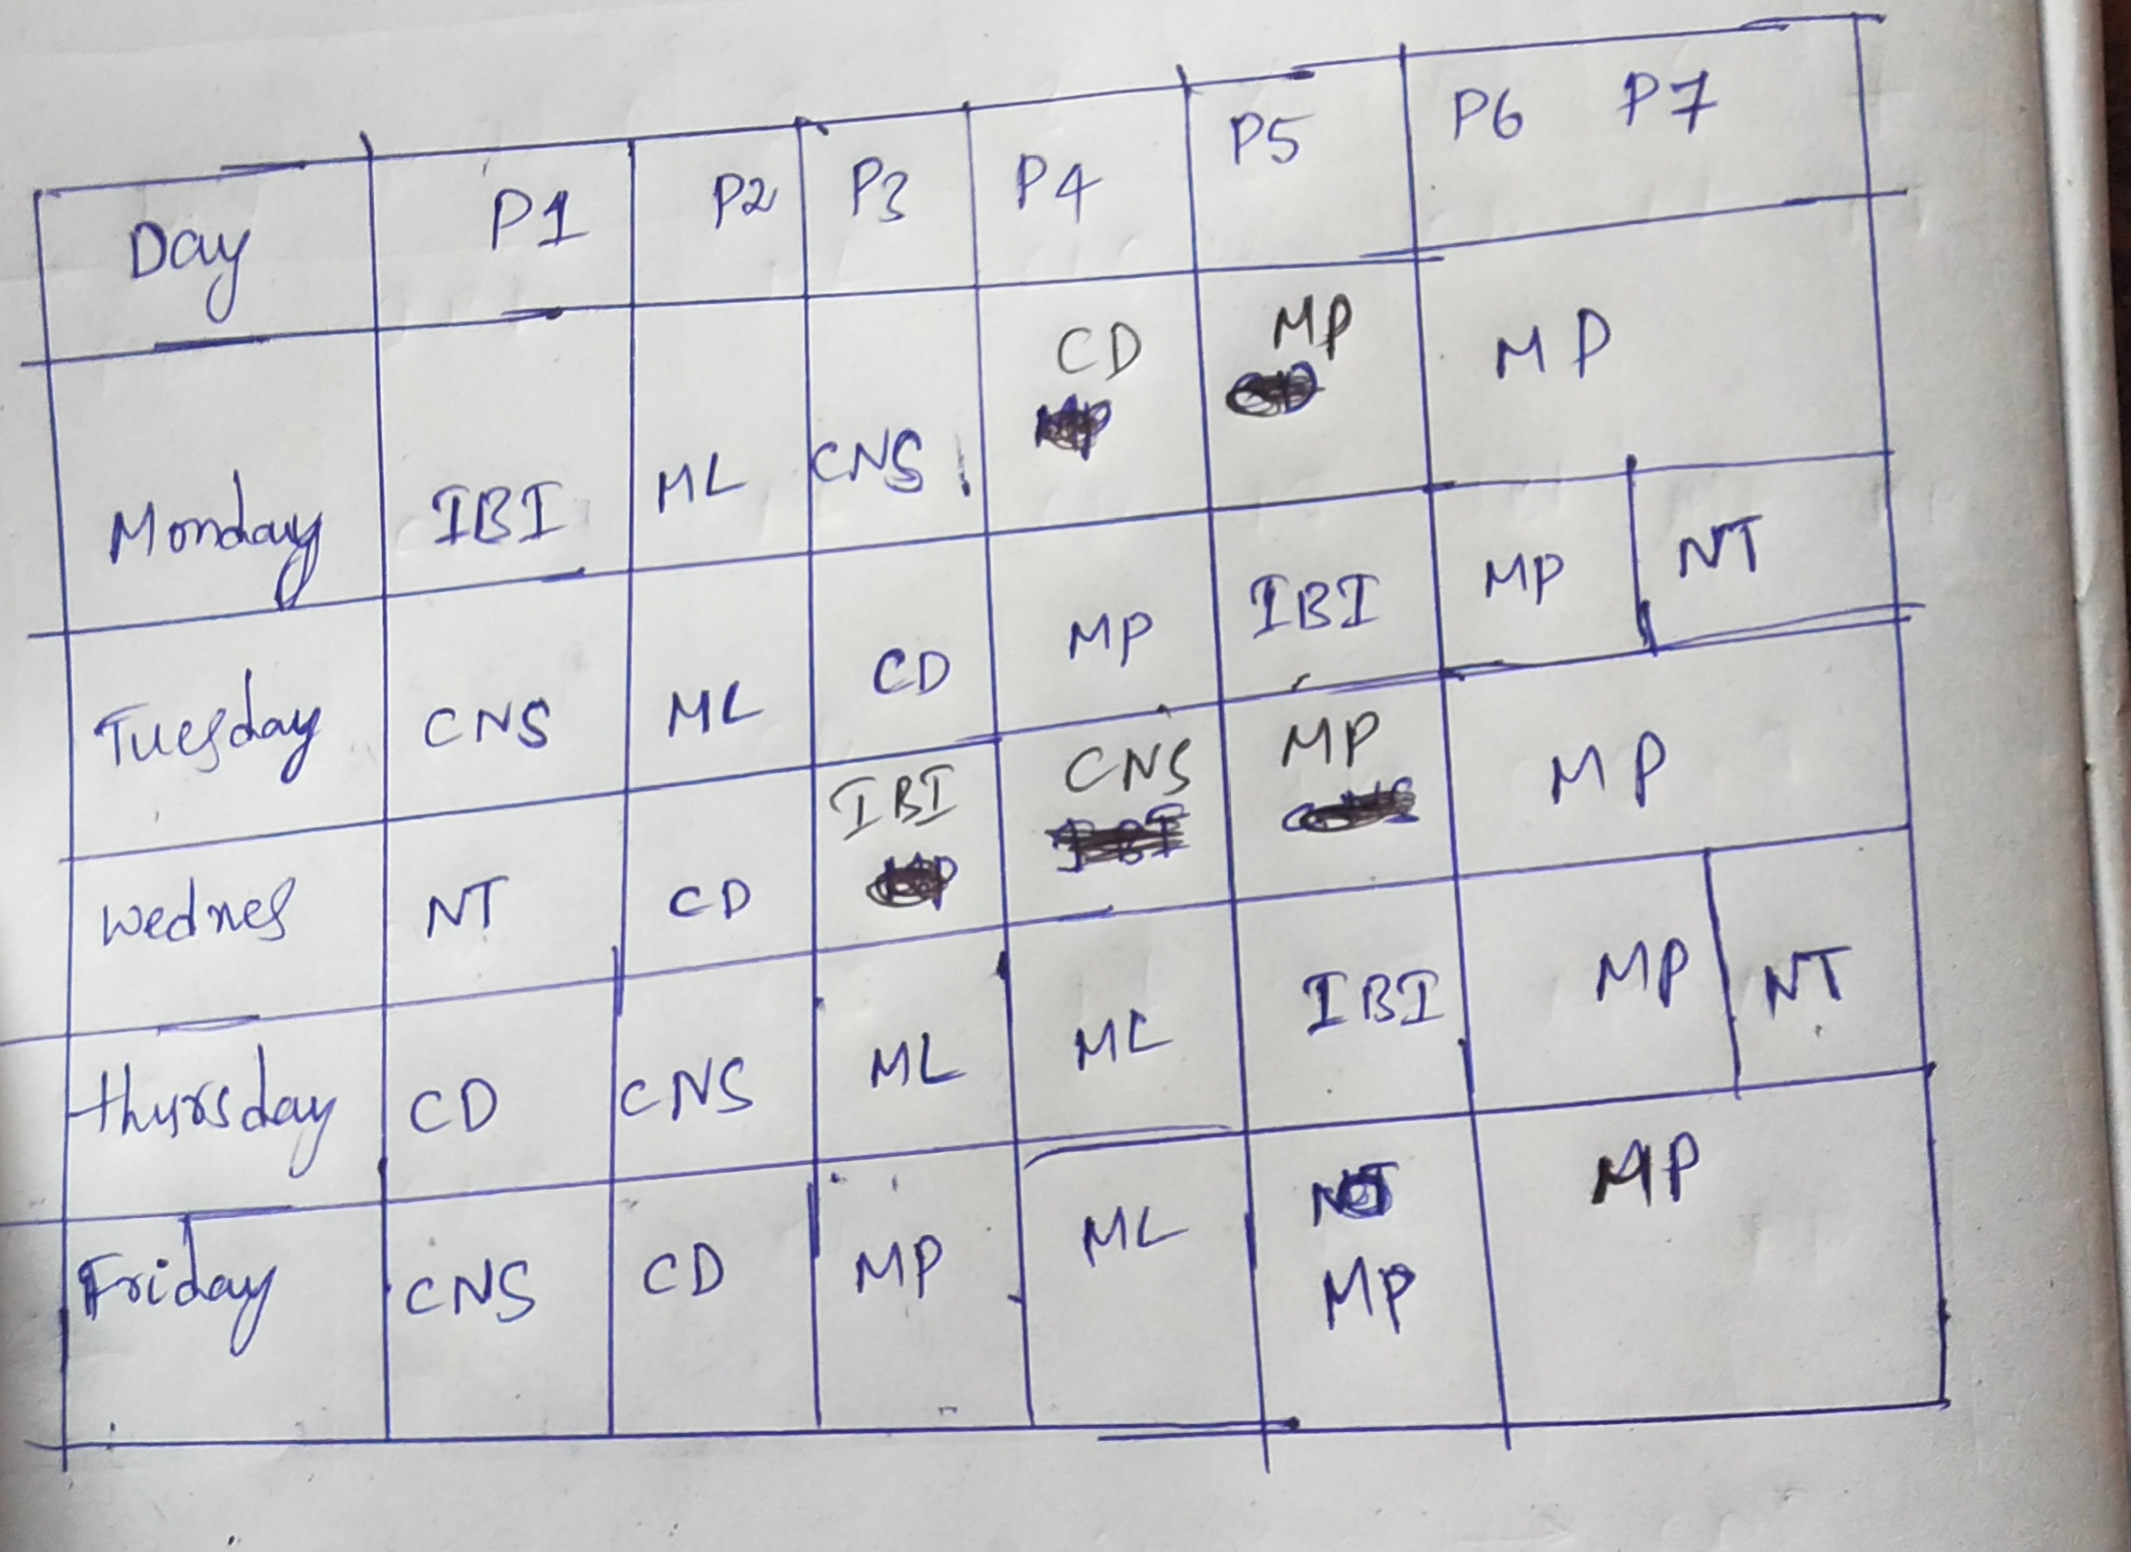 Day P1 P2 P3 P4 P5 P6 P7
Monday IBI ML CNS CD MP MP
Tuesday CNS ML CD MP IBI MP NT
Wednes NT CD IBI CNS MP MP
Thursday CD CNS ML ML IBI MP NT
Friday CNS CD MP ML MP MP